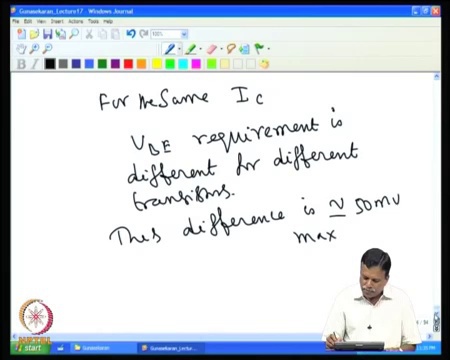 Gunasekaran_Lecture17 - Windows Journal
File Edit View Insert Actions Tools Help
For the Same Ic
VBE requirement is
different for different
transistors.
This difference is ≃ 50mV
max
start
Gunasekaran
Gunasekaran_Lectu...